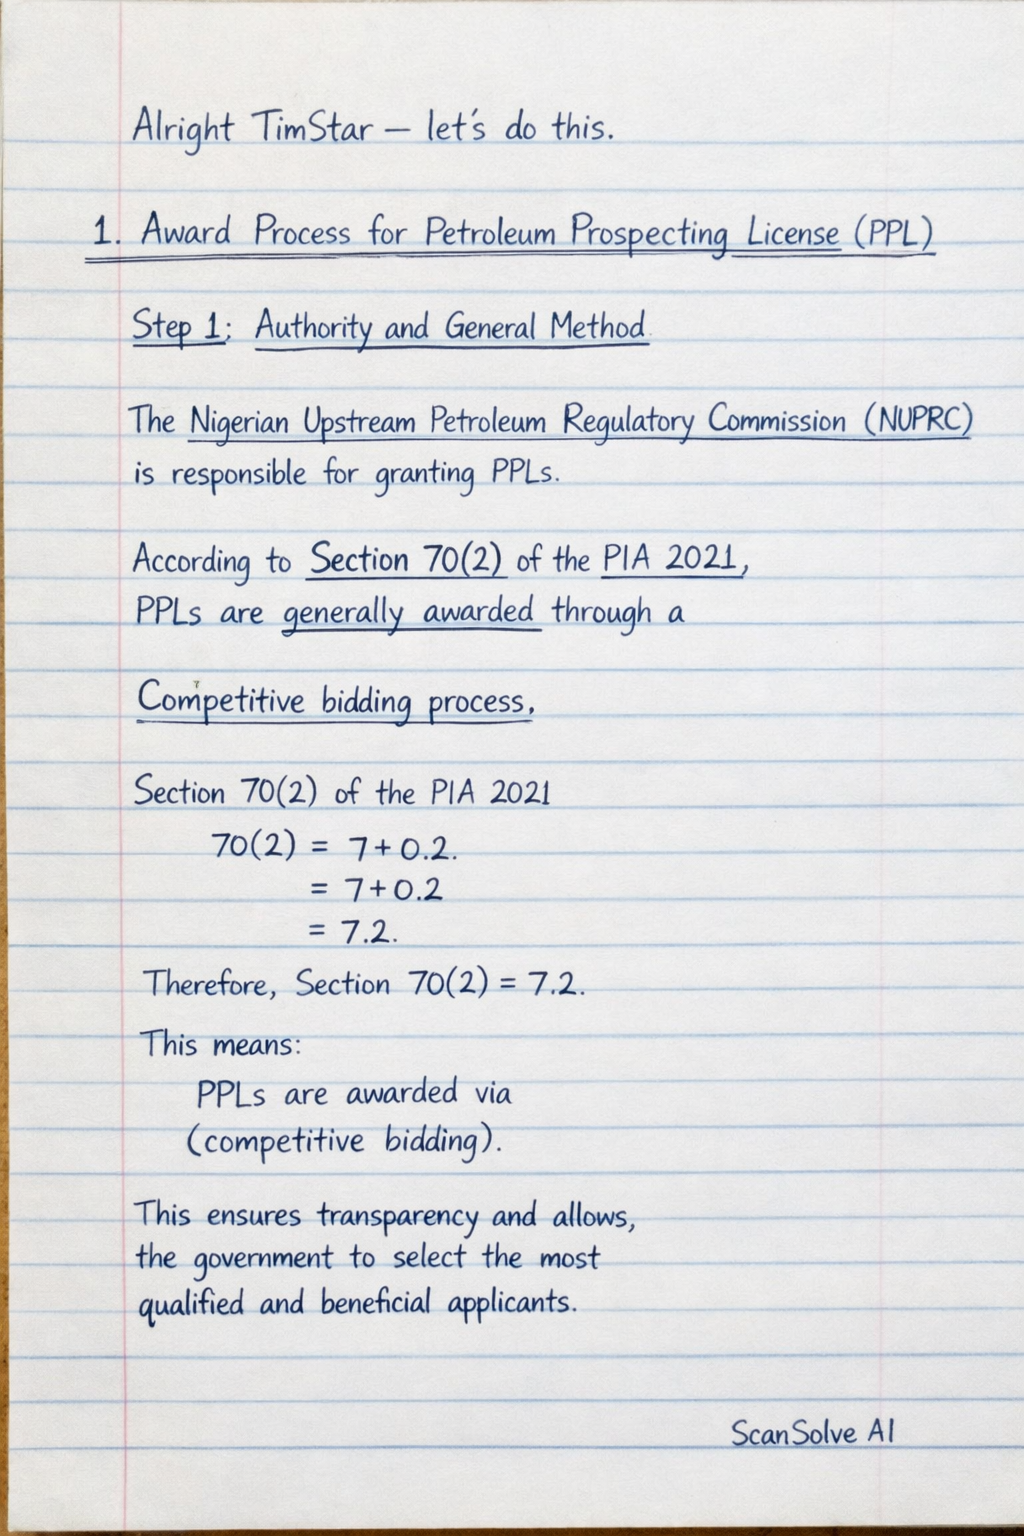 Alright TimStar — let's do this.
1. Award Process for Petroleum Prospecting License (PPL)
Step 1: Authority and General Method
The Nigerian Upstream Petroleum Regulatory Commission (NUPRC)
is responsible for granting PPLs.
According to Section 70(2) of the PIA 2021,
PPLs are generally awarded through a
Competitive bidding process,
Section 70(2) of the PIA 2021
70(2) = 7+0.2.
= 7+0.2
= 7.2.
Therefore, Section 70(2) = 7.2.
This means:
PPLs are awarded via
(competitive bidding).
This ensures transparency and allows,
the government to select the most
qualified and beneficial applicants.
ScanSolve AI